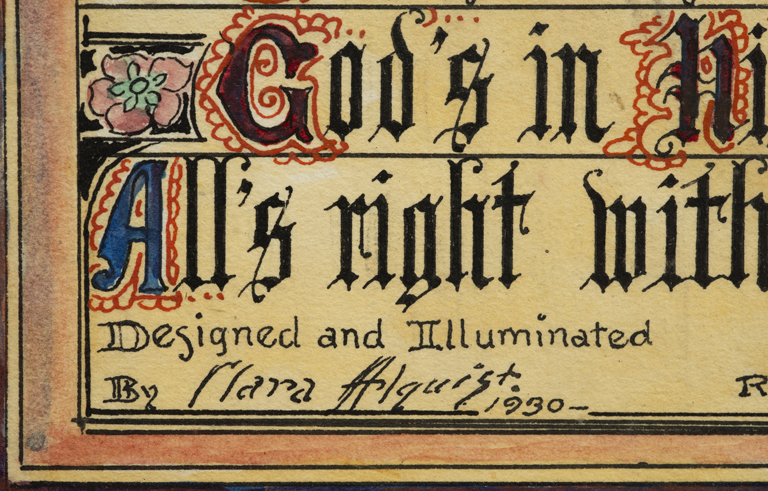 God's in Hi
All's right with
Designed and Illuminated
By Clara Ahlquist 1930- R